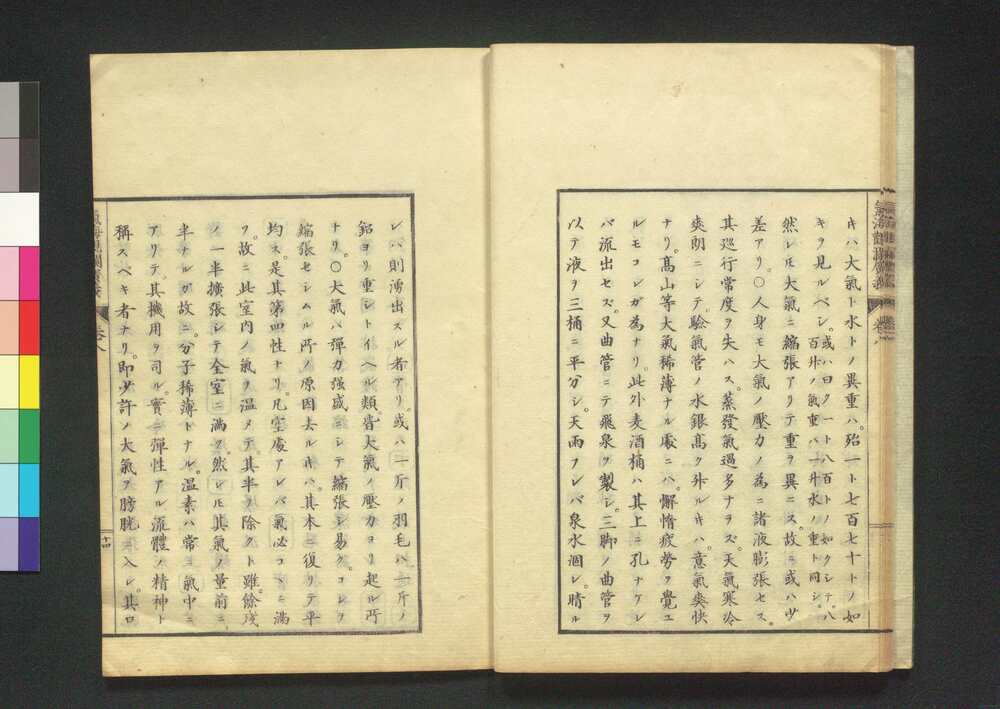 キハ大氣ト水トノ異重ハ。殆一ト七百七十トノ如
キヲ見ルベシ。或ハ曰ク一ト八百トノ如クシテ。八
百升ノ氣重ハ一升水ノ重ト同シ。
然レ𪜈大氣ニ縮張アリテ重ヲ異ニス。故ニ或ハ少
差アリ。○人身モ大氣ノ壓力ノ為ニ諸液膨張セス。
其巡行常度ヲ失ハス。蒸發氣過多ナラズ。天氣寒冷
爽朗ニシテ驗氣管ノ水銀高ク升ルキハ。意氣爽快
ナリ。髙山等大氣稀薄ナル處ニハ。懈惰疲勞ヲ覺ユ
ルモコレガ為ナリ。此外麦酒桶ハ其上ニ孔ナケレ
バ流出セズ。又曲管ニテ飛泉ヲ製シ。三脚ノ曲管ヲ
以テ液ヲ三桶ニ平分シ。天雨フレバ泉水涸レ。晴ル
氣海觀瀾廣義
卷八
レバ則湧出スル者アリ。或ハ一斤ノ羽毛ハ一斤ノ
鉛ヨリ重シトイヘル類。皆大氣ノ壓力ヨリ起ル所
ナリ。○大氣ハ彈力強盛ニシテ縮張シ易ク。コレヲ
縮張セシムル所ノ原因去ルキハ。其本ニ復リテ平
均ス。是其第四性ナリ。凡空處アレバ氣必コヽニ滿
ツ。故ニ此室内ノ氣ヲ温メテ。其半ヲ除クト雖。餘残
ノ一半擴張シテ全室ニ滿ツ。然レ𪜈其氣ノ量前ニ
半ナルガ故ニ。分子稀薄トナル。温素ハ常ニ氣中ニ
アリテ。其機用ヲ司ル。實ニ彈性アル流體ノ精神ト
稱スベキ者ナリ。即少許ノ大氣ヲ膀胱ニ入レ。其口
氣海觀瀾廣義
卷八
十四